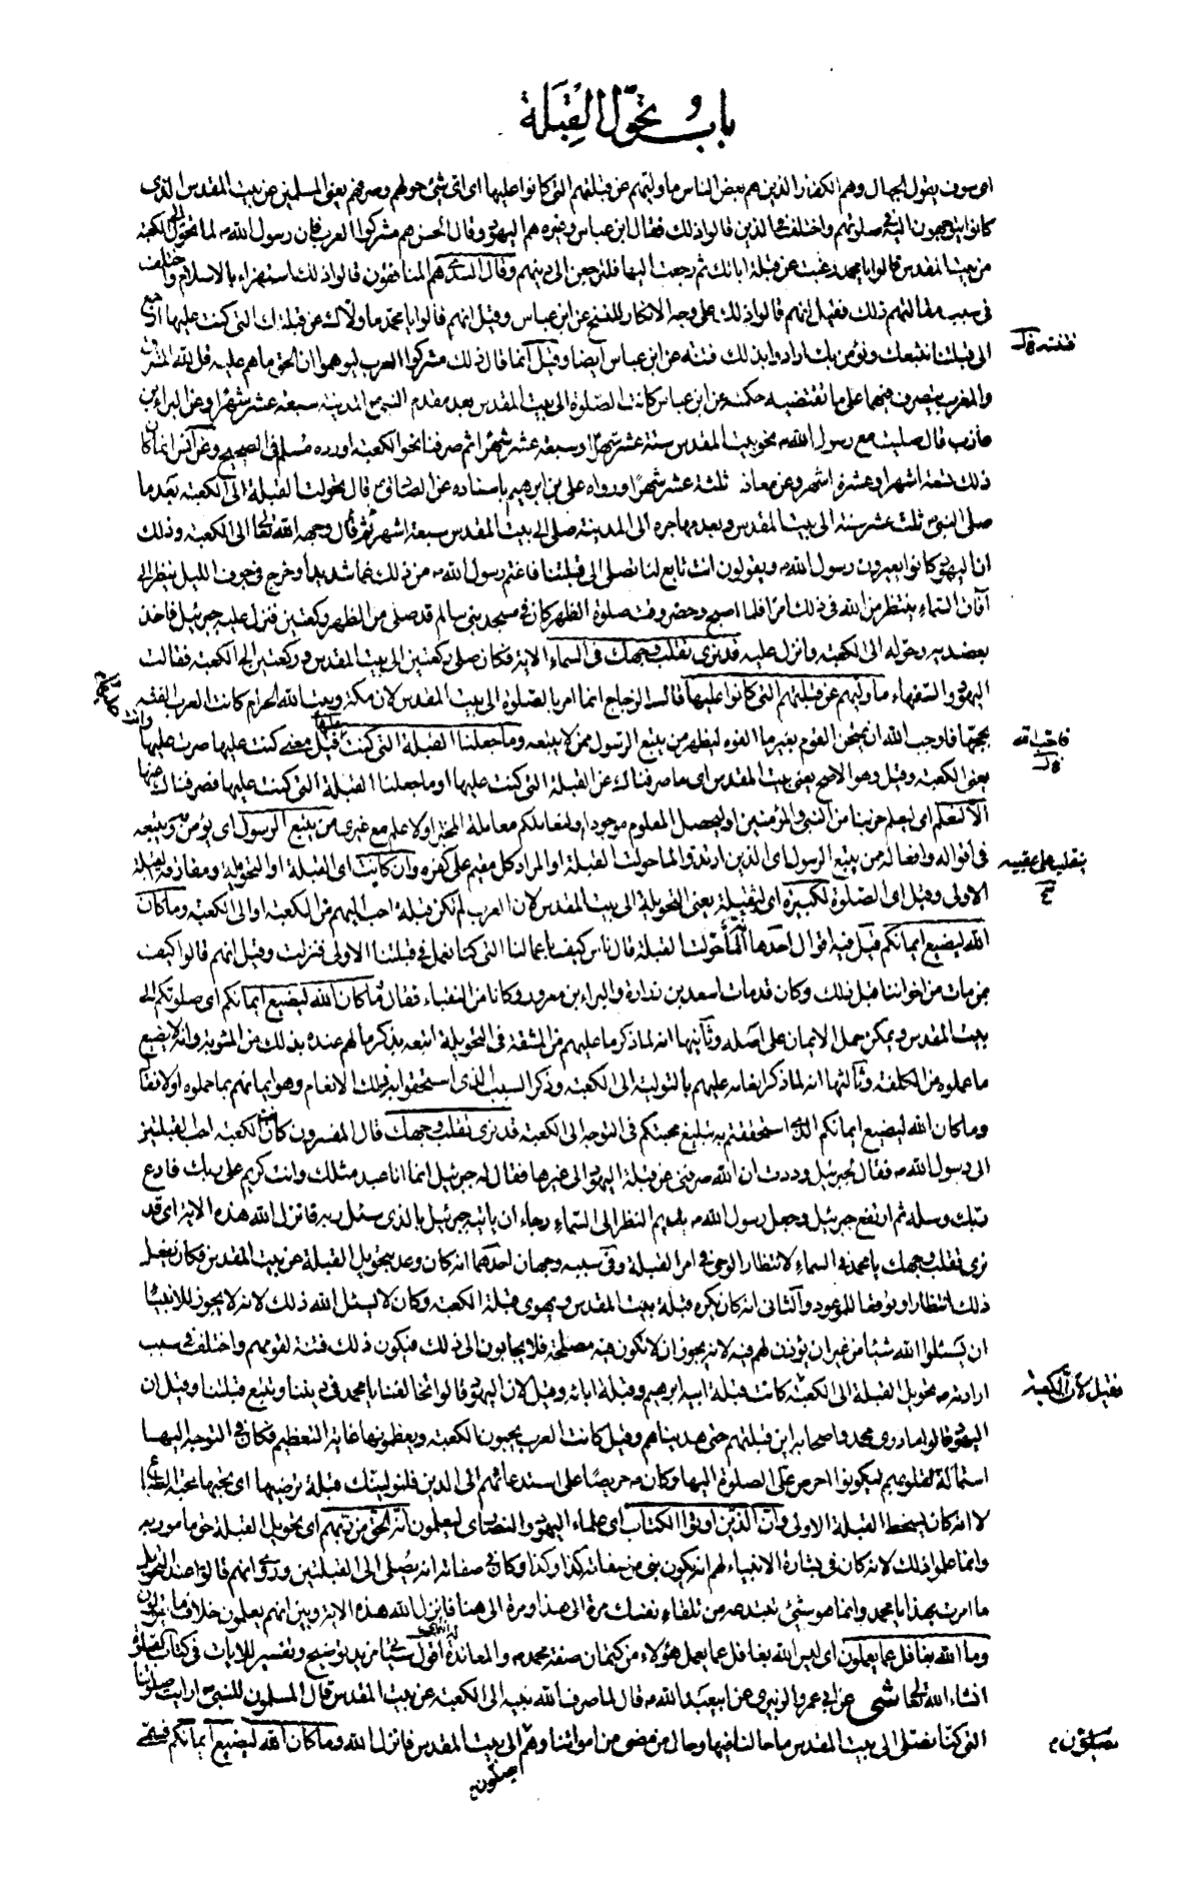 باب تحوّل القِبلَة
اى سوف يقول الجهال وهم الكفار الذين هم بعض الناس ما وليهم عن قبلتهم التى كانوا عليها اى اىّ شئ حولهم وصرفهم يعنى المسلمين عن بيت المقدس الذى
كانوا يتوجهون اليه فى صلوتهم واختلف فى الذين قالوا ذلك فقال ابن عباس وغيره هم اليهود وقال الحسن هم مشركوا العرب فان رسول الله ص لما تحوّل الى الكعبة
من بيت المقدس قالوا يا محمد رغبت عن قبلة ابائك ثم رجعت اليها فلترجعن الى دينهم وقال السدى هم المنافقون قالوا ذلك استهزاء بالاسلام واختلف
فى سبب مقالتهم ذلك فقيل انهم قالوا ذلك على وجه الانكار للنسخ عن ابن عباس وقيل انهم قالوا يا محمد ما ولاك عن قبلتك التى كنت عليها ارجع
الى قبلتنا نتبعك ونؤمن بك ارادوا بذلك فتنته عن ابن عباس ايضا وقيل انما قال ذلك مشركوا العرب ليوهموا ان الحق ما هم عليه قل لله المشرق
والمغرب يتصرف فيهما على ما تقتضيه حكمته عن ابن عباس كانت الصلوة الى بيت المقدس بعد مقدم النبى ص المدينة سبعة عشر شهرا وعن البراء بن
عازب قال صليت مع رسول الله ص نحو بيت المقدس ستة عشر شهرًا او سبعة عشر شهرًا ثم صرفنا نحو الكعبة اورده مسلم فى الصحيح وعن انس انما كان
ذلك تسعة اشهر او عشرة اشهر وعن معاذ ثلثة عشر شهرًا ورواه على بن ابرهيم باسناده عن الصادق ع قال تحولت القبلة الى الكعبة بعد ما
صلى النبى ص ثلث عشر سنة الى بيت المقدس وبعد مهاجره الى المدينة صلى الى بيت المقدس سبعة اشهر ثم قال وجهه الله تعالى الى الكعبة وذلك
ان اليهود كانوا يعيرون رسول الله ص ويقولون انت تابع لنا تصلى الى قبلتنا فاغتم رسول الله ص من ذلك غما شديدا وخرج فى جوف الليل ينظر الى
آفاق السماء ينتظر من الله فى ذلك امرًا فلما اصبح وحضر وقت صلوة الظهر كان فى مسجد بنى سالم قد صلى من الظهر ركعتين فنزل عليه جبرئيل فاخذ
بعضديه وحوّله الى الكعبة وانزل عليه قد نرى تقلب وجهك فى السماء الاية فكان صلى ركعتين الى بيت المقدس وركعتين الى الكعبة فقالت
اليهود والسفهاء ما وليهم عن قبلتهم التى كانوا عليها قال الزجاج انما امر بالصلوة الى بيت المقدس لان مكة وبيت الله الحرام كانت العرب الفته
بحجّها فاوجب الله ان يمتحن القوم بغير ما الفوه ليظهر من يتبع الرسول ممن لا يتبعه وما جعلنا القبلة التى كنت عليها قيل معنى كنت عليها صرت عليها وانت
يعنى الكعبة وقيل وهو الاصح يعنى بيت المقدس اى ما صرفناك عن القبلة التى كنت عليها او ما جعلنا القبلة التى كنت عليها فصرفناك عنها
الّا لنعلم اى ليعلم حزبنا من النبى والمؤمنين او ليحصل المعلوم موجودا او لنعاملكم معاملة المختبر او لا علم مع غيرى من يتبع الرسول اى يؤمن به ويتبعه
فى اقواله وافعاله ممن يتبع الرسول اى الذين ارتدوا لما حولت القبلة او المراد كل مقيم على كفره وان كانت اى القبلة او التحويلة ومفارقة القبلة
الاولى وقيل اى الصلوة لكبيرة اى لثقيلة يعنى التحويلة الى بيت المقدس لان العرب لم تكن قبلة احب اليهم من الكعبة او الى الكعبة وما كان
الله ليضيع ايمانكم قيل فيه اقوال احدها انه لما حوّلت القبلة قال ناس كيف باعمالنا التى كنا نعمل فى قبلتنا الاولى فنزلت وقيل انهم قالوا كيف
بمن مات من اخواننا قبل ذلك وكان قد مات اسعد بن زرارة والبراء بن معرور وكانا من النقباء فقال وما كان الله ليضيع ايمانكم اى صلوتكم الى
بيت المقدس ويمكن حمل الايمان على اصله وثانيها انه لما ذكر ما عليهم من المشقة فى التحويلة اتبعه بذكر ما لهم عنده بذلك من المثوبة وانه لا يضيع
ما عملوه من الكلفة وثالثها انه لما ذكر انعامه عليهم بالتولية الى الكعبة وذكر السبب الذى استحقوا به ذلك الانعام وهو ايمانهم بما حملوه اولا فقال
وما كان الله ليضيع ايمانكم الذى استحققتم به تبليغ محبتكم فى التوجه الى الكعبة قد نرى تقلب وجهك قال المفسرون كانت الكعبة احب القبلتين
الى رسول الله ص فقال لجبرئيل وددت ان الله صرفنى عن قبلة اليهود الى غيرها فقال له جبرئيل انما انا عبد مثلك وانت كريم على ربك فادع
ربك وسله ثم ارتفع جبرئيل وجعل رسول الله ص يديم النظر الى السماء رجاء ان ياتيه جبرئيل بالذى سئل ربه فانزل الله هذه الاية اى قد
نرى تقلب وجهك يا محمد فى السماء لانتظار الوحى فى امر القبلة وفى سببه وجهان احدهما انه كان وعد بتحويل القبلة عن بيت المقدس فكان يفعل
ذلك انتظارا وتوقعا للموعود والثانى انه كان يكره قبلة بيت المقدس ويهوى قبلة الكعبة وكان لا يسئل الله ذلك لانه لا يجوز للانبياء
ان يسئلوا الله شيئا من غير ان يؤذن لهم فيه لانه يجوز ان لا تكون فيه مصلحة فلا يجابون الى ذلك فيكون ذلك فتنة لقومهم واختلف فى سبب
ارادته ص تحويل القبلة الى الكعبة كانت قبلة ابيه ابرهيم وقبلة ابائه وقيل لان اليهود قالوا تخالفنا يا محمد فى ديننا وتتبع قبلتنا وقيل ان
اليهود قالوا ما درى محمد واصحابه اين قبلتهم حتى هديناهم وقيل كانت العرب يحبون الكعبة ويعظمونها غاية التعظيم فكان فى التوجه اليها
استمالة لقلوبهم ليكونوا احرص على الصلوة اليها وكان ص حريصًا على استدعائهم الى الدين فلنولينك قبلة ترضيها اى تحبها محبة الطباع
لا انه كان يسخط القبلة الاولى وان الذين اوتوا الكتاب اى علماء اليهود والنصارى ليعلمون انه الحق من ربهم اى تحويل القبلة حق مامور به
وانما علموا ذلك لانه كان فى بشارة الانبياء لهم انه يكون نبى من صفاته كذا وكذا وكان فى صفاته انه يصلى الى القبلتين وروى انهم قالوا عند التحويل
ما امرت بهذا يا محمد وانما هو شئ تبتدعه من تلقاء نفسك مرة الى هذا ومرة الى هنا فانزل الله هذه الاية وبين انهم يعلمون خلاف ما يقولون
وما الله بغافل عما يعملون اى ليس الله بغافل عما يعمل هؤلاء من كتمان صفة محمد ص والمعاندة اقول سياتى مزيد توضيح وتفسير للايات فى كتاب الصلوة
انشاء الله تعالى شى عن ابى عمرو الزبيرى عن ابيعبد الله ص قال لما صرف الله نبيه الى الكعبة عن بيت المقدس قال المسلمون للنبى ص ارايت صلوتنا
التى كنا نصلى الى بيت المقدس ما حالنا فيها وحال من مضى من امواتنا وهم الى بيت المقدس فانزل الله وما كان الله ليضيع ايمانكم فسمى
يصلون
فاحب الله
ينقلب على عقبيه
فقيل لان الكعبة
يصلون